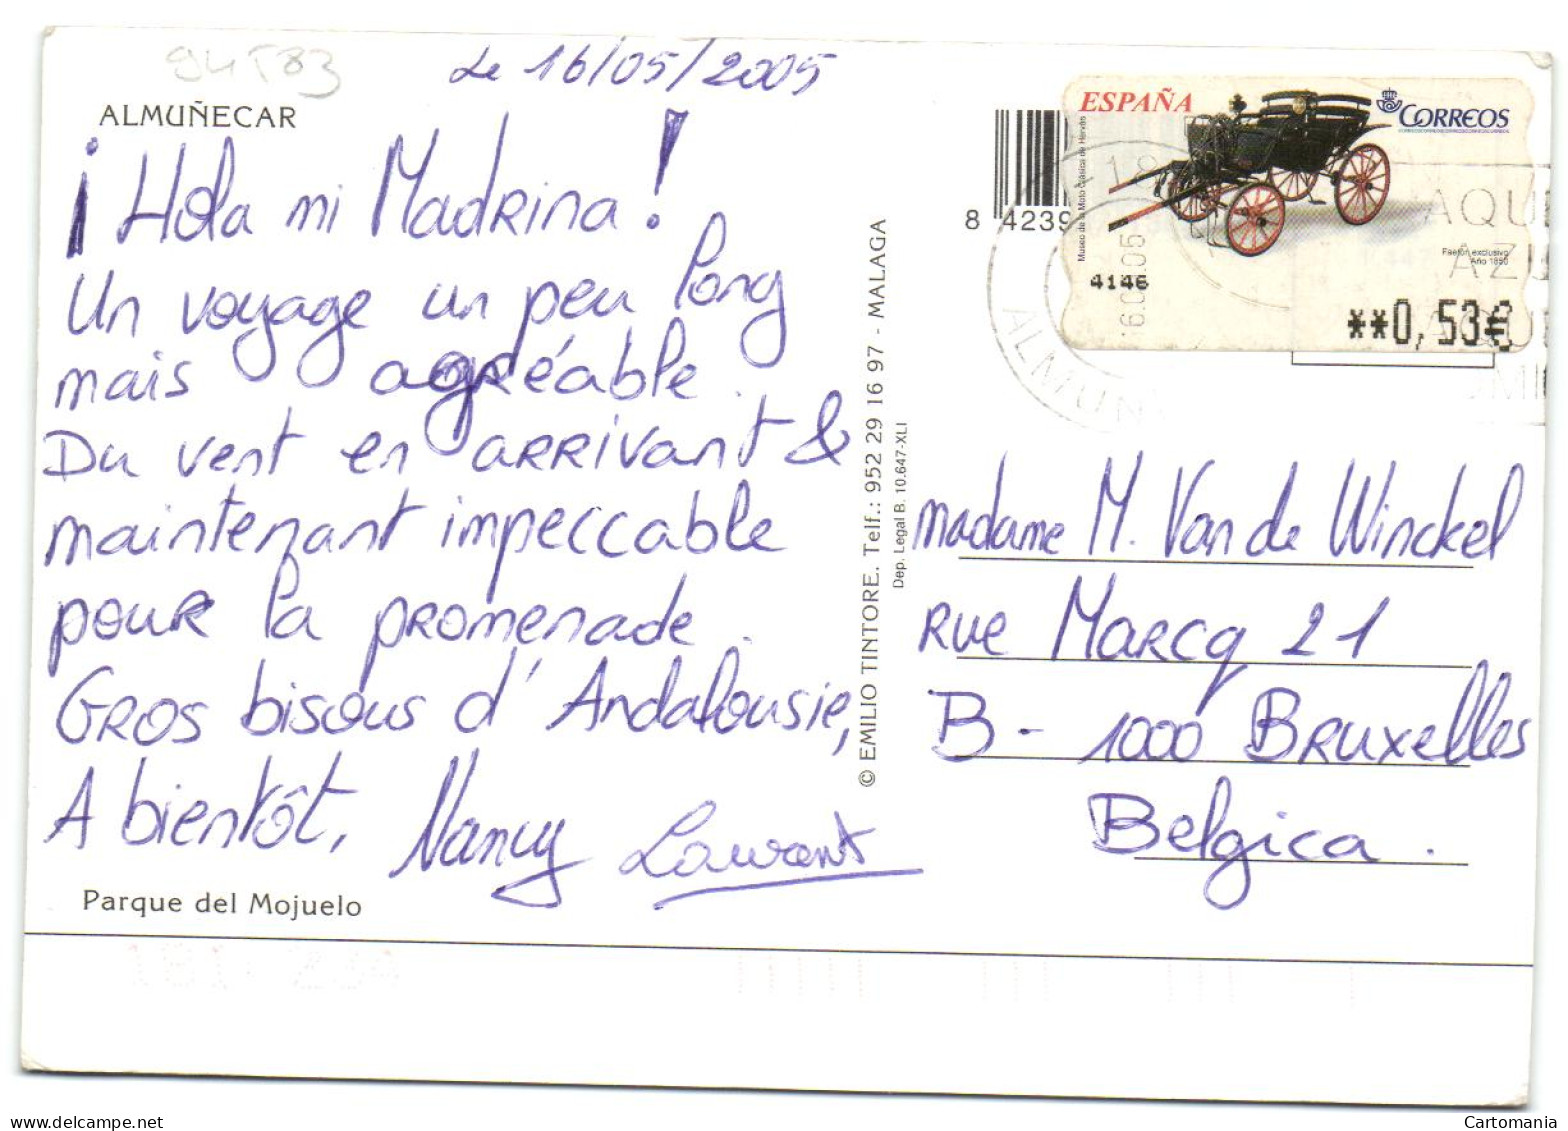 94T83
Le 16/05/2005
ALMUÑECAR
¡Hola mi Madrina!
Un voyage un peu long
mais agréable.
Du vent en arrivant &
maintenant impeccable
pour la promenade.
Gros bisous d'Andalousie,
A bientôt, Nancy Laurent
Parque del Mojuelo
© EMILIO TINTORE. Telf.: 952 29 16 97 - MALAGA
Dep. Legal B. 10.647-XLI
8 4239
ESPAÑA
CORREOS
Museo de la Moto Clásica de Hervás
Faetón exclusivo
Año 1890
4146
**0,53€
ALMUÑ
madame M. Van de Winckel
rue Marcq 21
B - 1000 Bruxelles
Belgica.
Cartomania